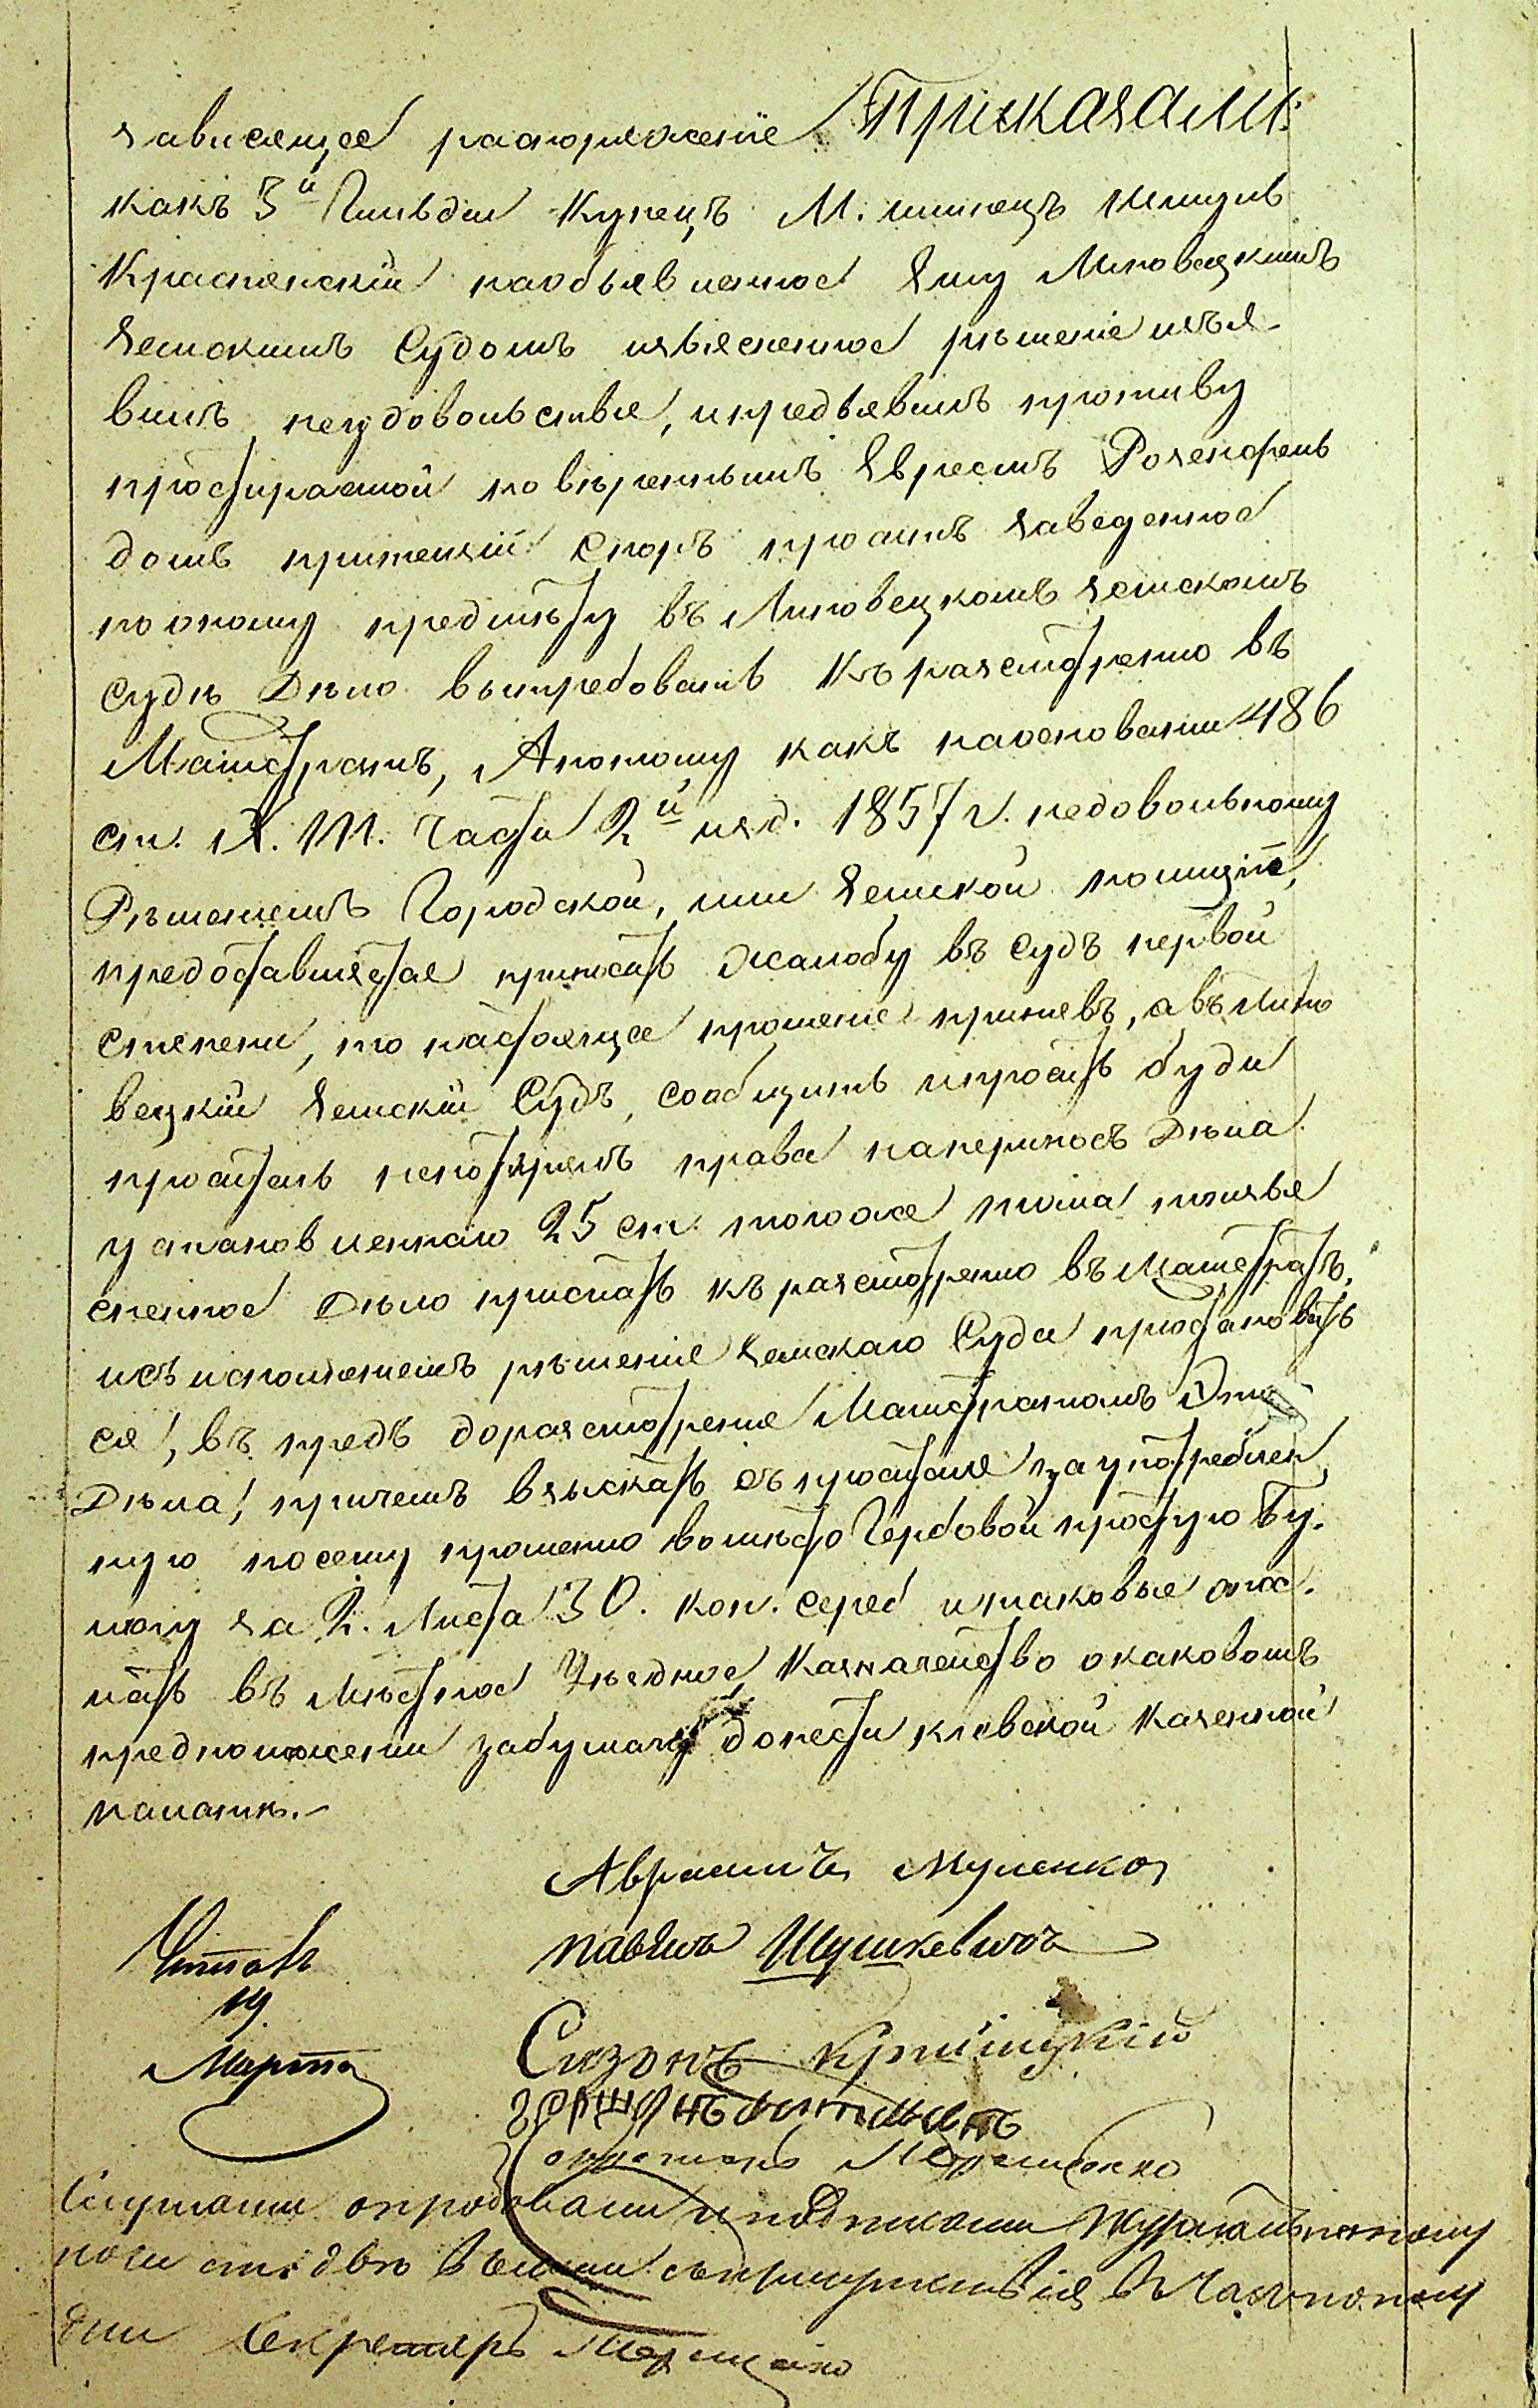 зависящее распоряженіе. Приказали:
какъ 3й Гильдіи Купецъ М. Липовецъ
Краснянскій наобъявленное Ему Липовецкимъ
Земскимъ Судомъ изъясненное рѣшеніе изъя-
вилъ неудовольствіе, ипредъявилъ противу
простираемой повѣреннымъ Евреемъ Розенфель
домъ притензіи споръ проситъ заведенное
пооному предмѣту въ Липовецкомъ Земскомъ
Судѣ Дѣло вытребовать Къ разсмотренію въ
Магистратъ, Апотому какъ наоснованіи 486
ст. X. Т. Части 2й изд. 1857 г. недовольному
Рѣшеніемъ Городской, или Земской полиціи,
предоставляется приносить жалобу въ судъ первой
степени, то настоящее прошеніе принявъ, авъ Липо
вецкій Земскій Судъ, сообщить ипросить буди
проситель непотерялъ права наперносъ Дѣла
установленнаго 25 ст. тогоже тома поизъя
сненное Дѣло прислать къ разсмотренію въ Магистратъ,
исъ исполненіемъ рѣшенія Земскаго Суда пріостановить
ся, въ предъ доразсмотренія Магистратомъ Это
Дѣла, причемъ взыскать съ просителя заупотреблен
ную посему прошенію вомѣсто Гербовой простую Бу.
магу за 2. Листа 30. коп. сереб итаковые отос.
лать въ Мѣстное Уѣздное Казначейство окаковомъ
предположеніи забумагу донести кіевской Казенной
палатѣ.-
Аврамъ Муленко
Павелъ Шушкевичъ
Читалъ
19
Марта
Сизонъ
Секретарь Терещенко
Слушали опробовали иподписали Журналъ потому
Дни Секретарь Терещенко